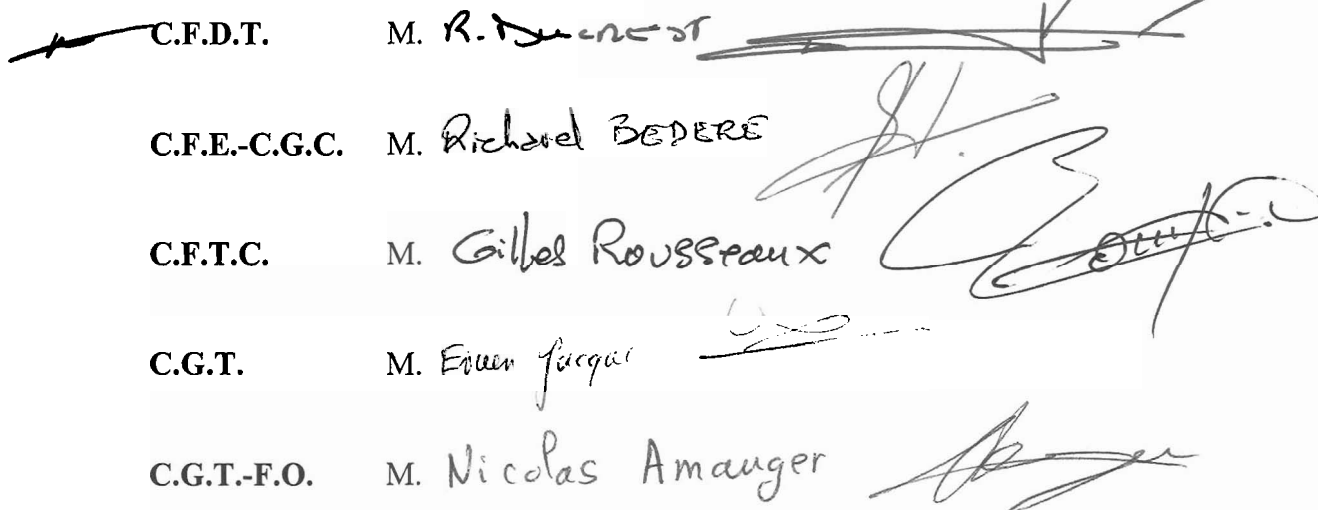 C.F.D.T. M. R. Ducrest
C.F.E.-C.G.C. M. Richard BEDERE
C.F.T.C. M. Gilles Rousseaux
C.G.T. M. Erwen
C.G.T.-F.O. M. Nicolas Amauger